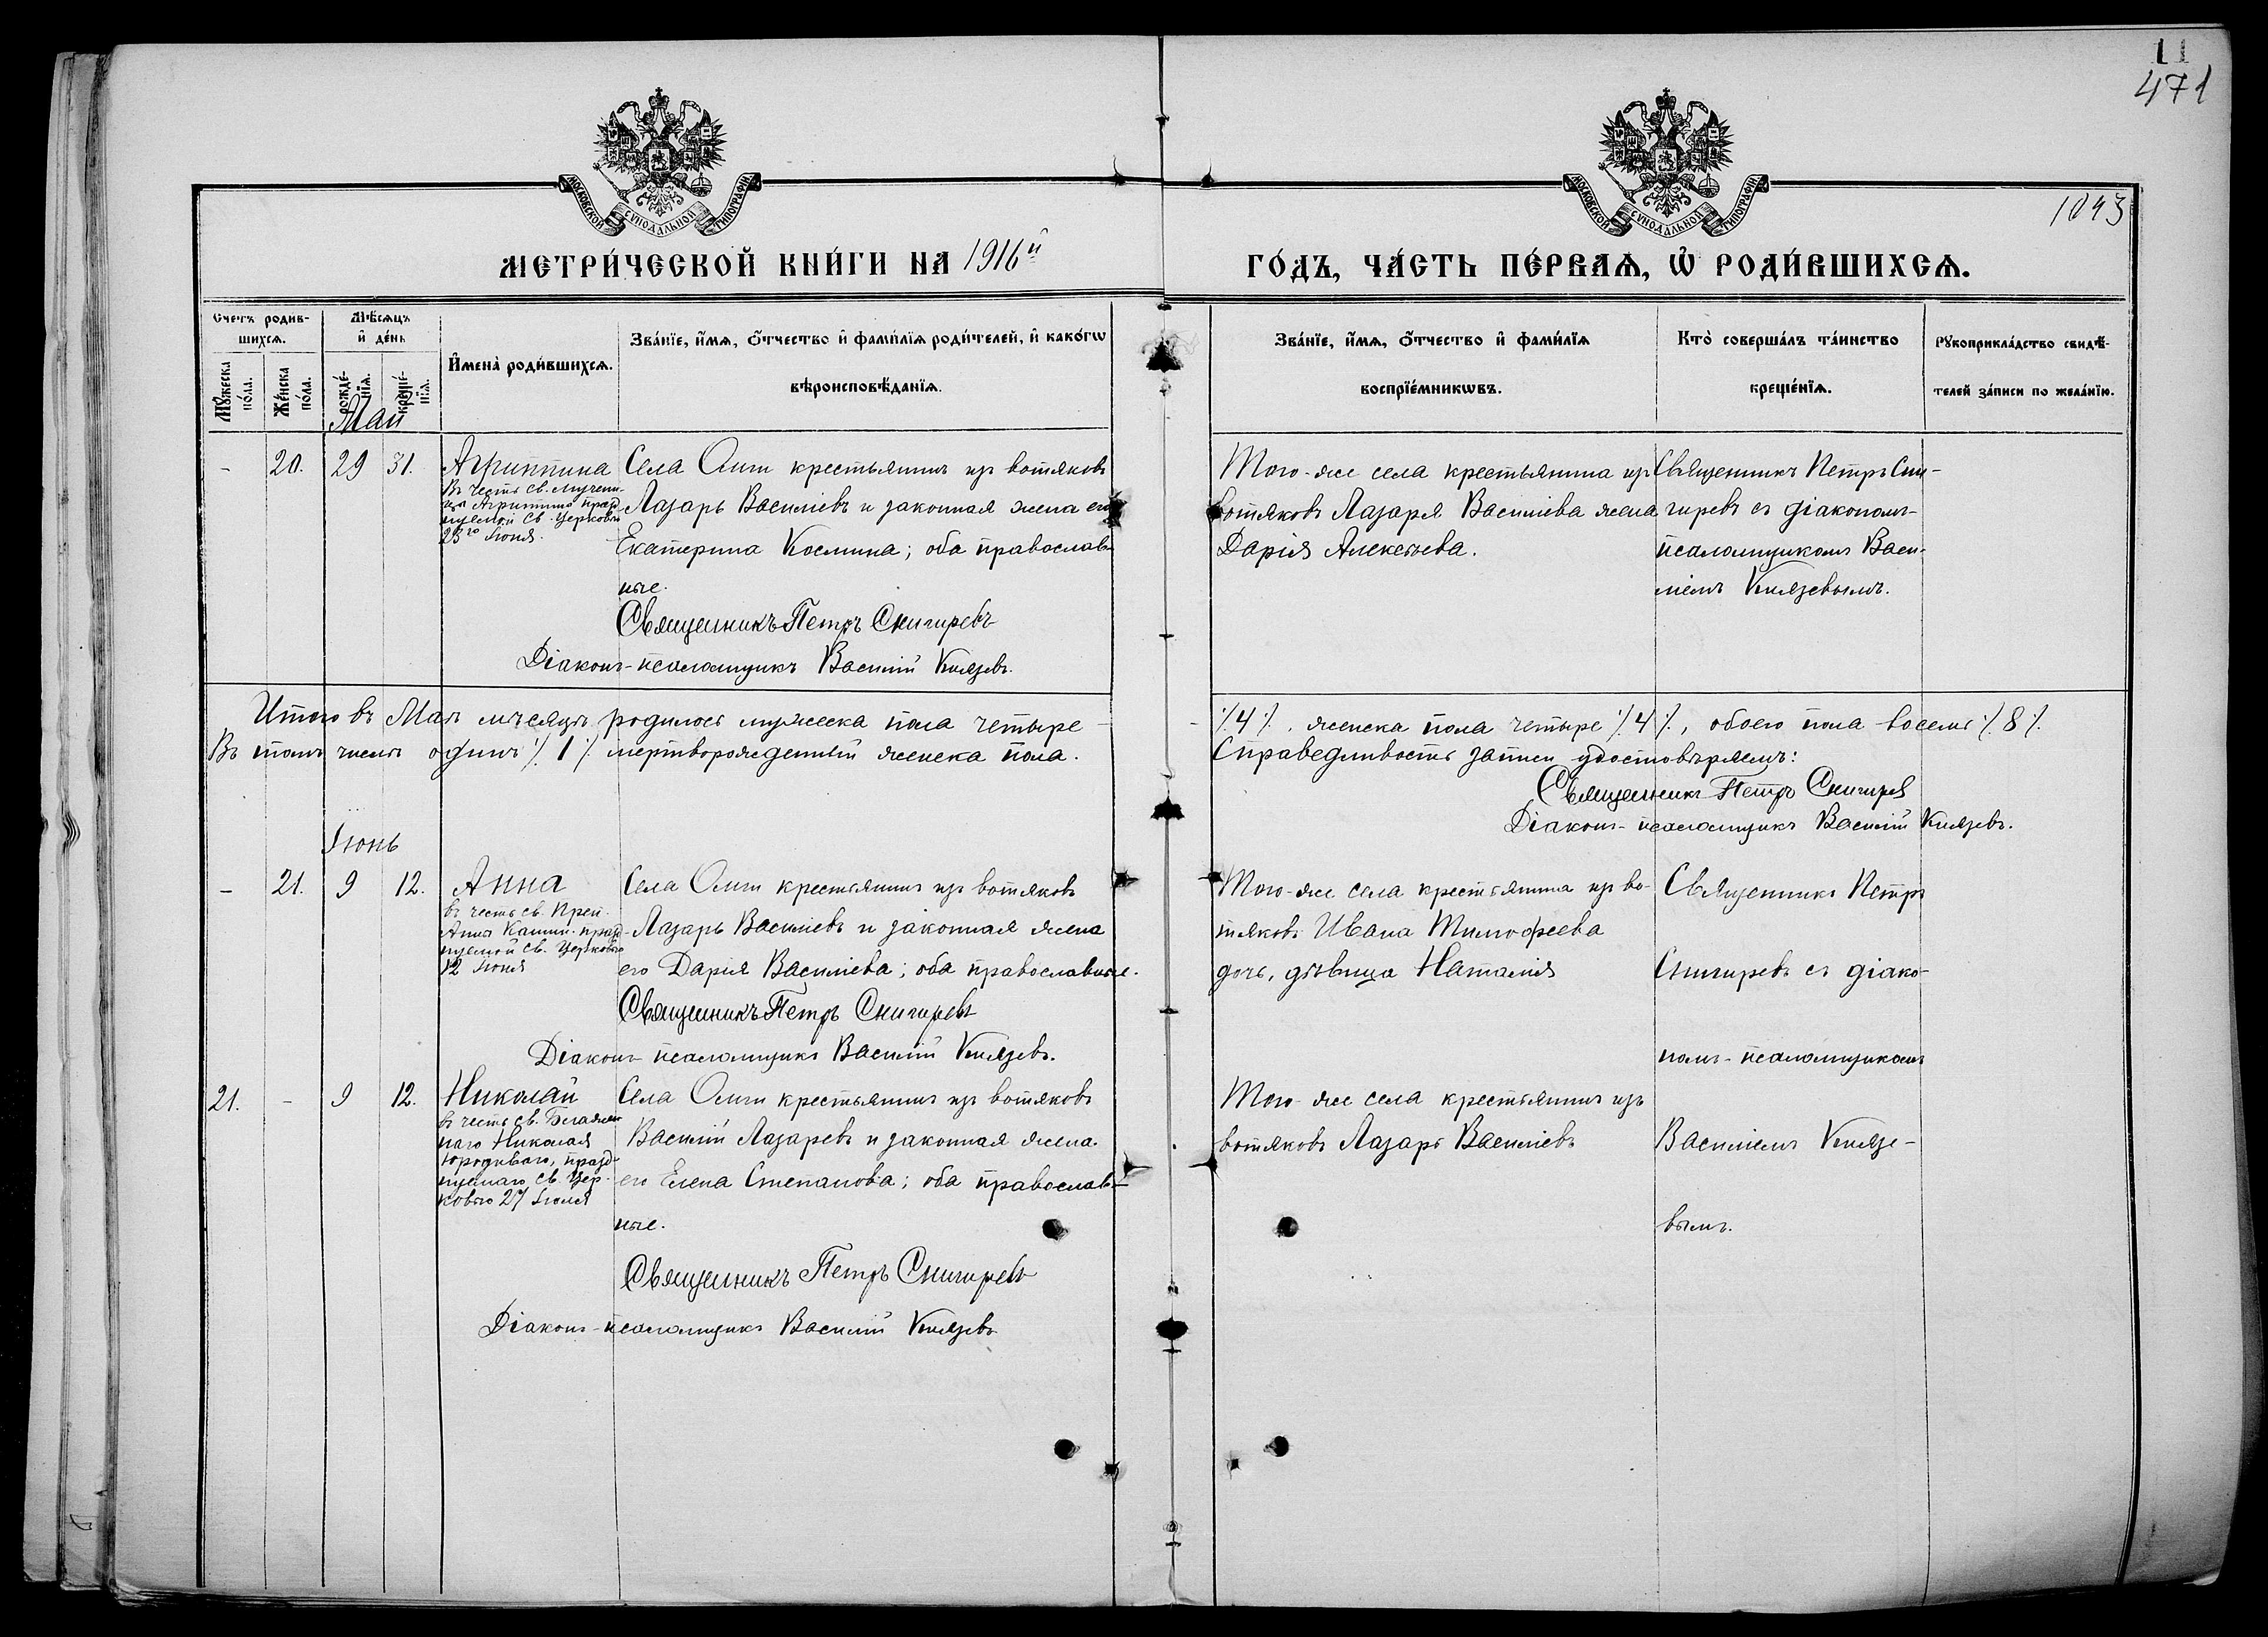 11
471
МОСКОВСКОЙ СѴНОДАЛЬНОЙ ТИПОГРАФІИ
МОСКОВСКОЙ СѴНОДАЛЬНОЙ ТИПОГРАФІИ
1043
МЕТРИ́ЧЕСКОЙ КНИ́ГИ НА 1916й
ГО́ДЪ, ЧА́СТЬ ПЕ́РВАѦ, Ѡ҆ РОДИ́ВШИХСѦ.
Счетъ родив-
шихсѧ.
Мꙋжеска по́ла.
Же́нска по́ла.
Мѣ́сѧцъ
и҆ де́нь
рожде́-нїѧ.
креще́-нїѧ.
И҆мена̀ роди́вшихсѧ.
Зва́нїе, и҆́мѧ, ѻ҆́тчество и҆ фами́лїѧ роди́телей, и҆ како́гѡ
вѣроисповѣ́данїѧ.
Зва́нїе, и҆́мѧ, ѻ҆́тчество и҆ фами́лїѧ
воспрїе́мникѡвъ.
Кто̀ соверша́лъ та́инство
креще́нїѧ.
Рꙋкоприкла́дство свидѣ́-
телей за́писи по жела́нїю.
Май
- 20. 29 31.
Агриппина
Въ честь св. мучени-
цы Агриппины празд-
нуемой Св. Церковью
23го Іюня.
Села крестьянинъ изъ вотяковъ
Лазарь Василіевъ и законная жена его
Екатерина Космина; оба православ-
ные.
Священникъ Петръ Снигиревъ
Діаконъ-псаломщикъ Василій Князевъ.
Того-же села крестьянина изъ
вотяковъ Лазаря Василіева жена
Дарія Алексѣева.
Священникъ Петръ Сни-
гиревъ съ діакономъ-
псаломщикомъ Васи-
ліемъ Князевымъ.
Итого въ Маѣ мѣсяцѣ родилось мужеска пола четыре -
- ٪4٪, женска пола четыре ٪4٪, обоего пола восемь ٪8٪.
Въ томъ числѣ одинъ ٪1٪ мертворожденный женска пола.
Справедливость записи удостовѣряемъ:
Священникъ Петръ Снигирев
Діаконъ-псаломщикъ Василій Князевъ.
Іюнь
- 21. 9 12.
Анна
въ честь св. Преп.
Анны Кашин. празд-
нуемой св. Церковью
12 Іюня
Села крестьянинъ изъ вотяковъ
Лазарь Василіевъ и законная жена
его Дарія Василіева; оба православные.
Священникъ Петръ Снигиревъ
Діаконъ псаломщикъ Василій Князевъ.
Того-же села крестьянина изъ во-
тяковъ Ивана Тимофеева
дочь, дѣвица Наталія
Священникъ Петръ
Снигиревъ съ діако-
номъ-псаломщикомъ
21. - 9 12.
Николай
въ честь св. Блажен-
наго Николая
Юродиваго, празд-
нуемаго св. Цер-
ковью 27 Іюля
Села крестьянинъ изъ вотяковъ
Василій Лазаревъ и законная жена
его Елена Степанова; оба православ-
ные.
Священникъ Петръ Снигиревъ
Діаконъ-псаломщикъ Василій Князевъ
Того-же села крестьянинъ изъ
вотяковъ Лазарь Василіевъ
Василіемъ Князе-
вымъ.